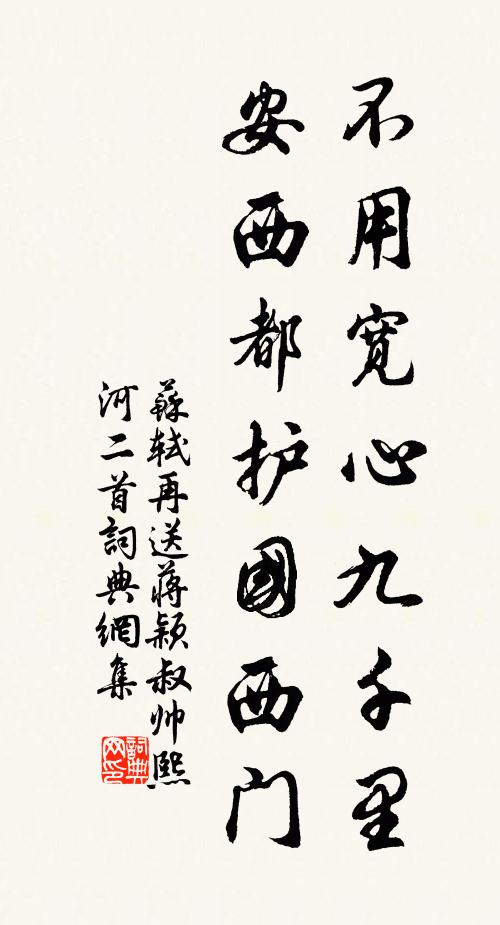 不用宽心九千里
安西都护國西门
蘇軾再送蔣颖叔帅熙
河二首詞典網集
詞典
网印